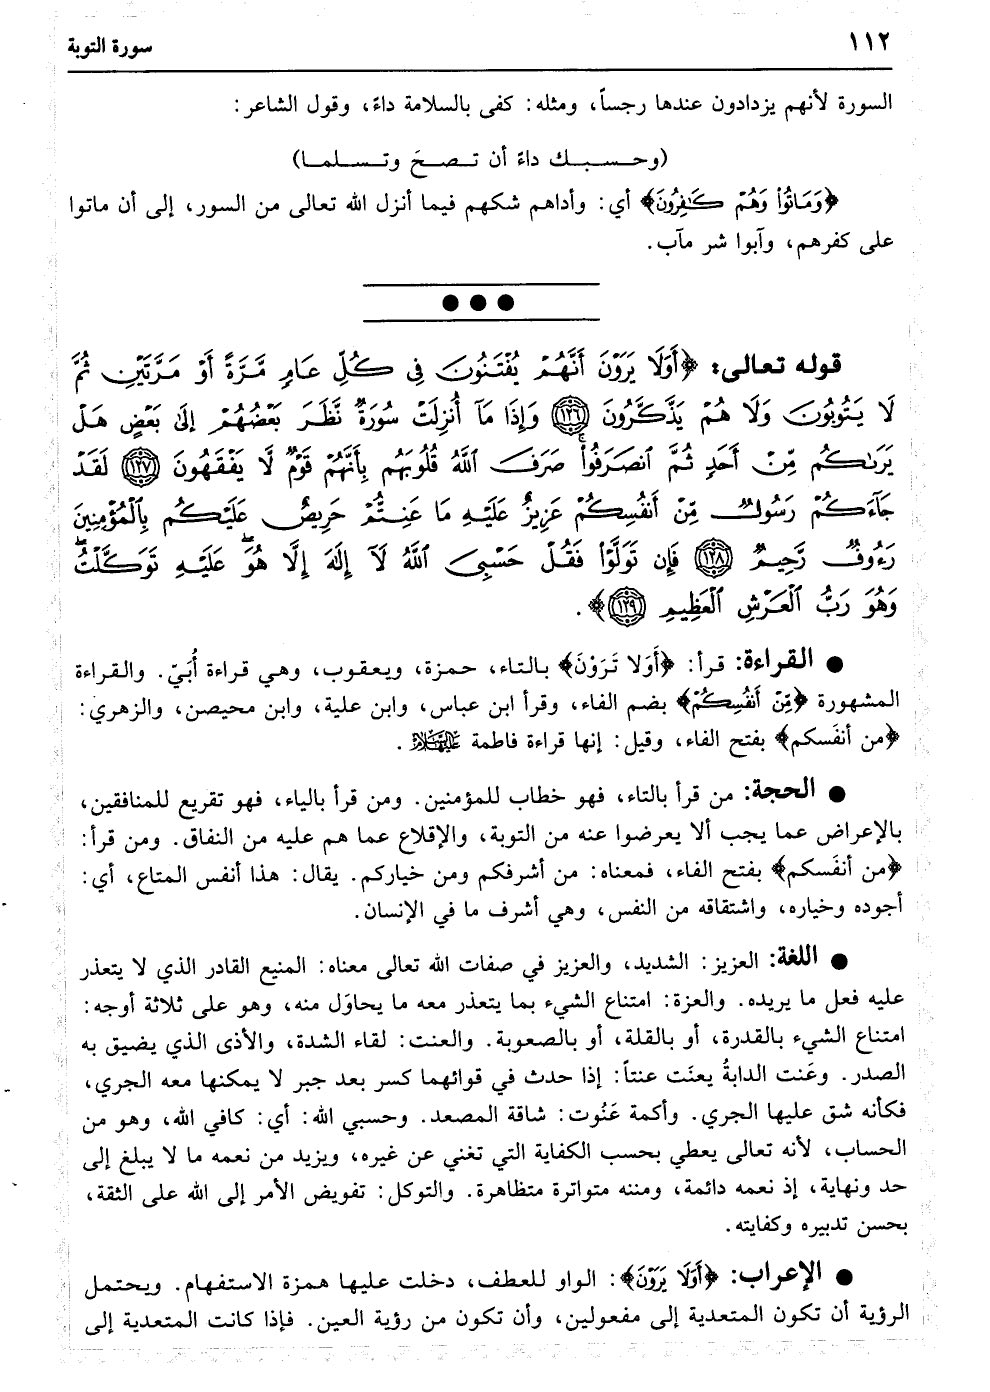 ١١٢
سورة التوبة
السورة لأنهم يزدادون عندها رجساً، ومثله: كفى بالسلامة داءً، وقول الشاعر:
(وحسبك داءً أن تصحَ وتسلما)
﴿وَمَاتُواْ وَهُمْ كَـٰفِرُونَ﴾ أي: وأداهم شكهم فيما أنزل الله تعالى من السور، إلى أن ماتوا
على كفرهم، وآبوا شر مآب.
قوله تعالى: ﴿أَوَلَا يَرَوْنَ أَنَّهُمْ يُفْتَنُونَ فِى كُلِّ عَامٍ مَّرَّةً أَوْ مَرَّتَيْنِ ثُمَّ
لَا يَتُوبُونَ وَلَا هُمْ يَذَّكَّرُونَ ١٢٦ وَإِذَا مَآ أُنزِلَتْ سُورَةٌ نَّظَرَ بَعْضُهُمْ إِلَىٰ بَعْضٍ هَلْ
يَرَىٰكُم مِّنْ أَحَدٍ ثُمَّ ٱنصَرَفُواْۚ صَرَفَ ٱللَّهُ قُلُوبَهُم بِأَنَّهُمْ قَوْمٌ لَّا يَفْقَهُونَ ١٢٧ لَقَدْ
جَآءَكُمْ رَسُولٌ مِّنْ أَنفُسِكُمْ عَزِيزٌ عَلَيْهِ مَا عَنِتُّمْ حَرِيصٌ عَلَيْكُم بِٱلْمُؤْمِنِينَ
رَءُوفٌ رَّحِيمٌ ١٢٨ فَإِن تَوَلَّوْاْ فَقُلْ حَسْبِىَ ٱللَّهُ لَآ إِلَـٰهَ إِلَّا هُوَۖ عَلَيْهِ تَوَكَّلْتُۖ
وَهُوَ رَبُّ ٱلْعَرْشِ ٱلْعَظِيمِ ١٢٩﴾.
● القراءة: قرأ: ﴿أَوَلا تَرَوْنَ﴾ بالتاء، حمزة، ويعقوب، وهي قراءة أُبَيّ. والقراءة
المشهورة ﴿مِّنْ أَنفُسِكُمْ﴾ بضم الفاء، وقرأ ابن عباس، وابن علية، وابن محيصن، والزهري:
﴿من أنفَسكم﴾ بفتح الفاء، وقيل: إنها قراءة فاطمة عليها السلام.
● الحجة: من قرأ بالتاء، فهو خطاب للمؤمنين. ومن قرأ بالياء، فهو تقريع للمنافقين،
بالإعراض عما يجب ألا يعرضوا عنه من التوبة، والإقلاع عما هم عليه من النفاق. ومن قرأ:
﴿من أنفَسكم﴾ بفتح الفاء، فمعناه: من أشرفكم ومن خياركم. يقال: هذا أنفس المتاع، أي:
أجوده وخياره، واشتقاقه من النفس، وهي أشرف ما في الإنسان.
● اللغة: العزيز: الشديد، والعزيز في صفات الله تعالى معناه: المنيع القادر الذي لا يتعذر
عليه فعل ما يريده. والعزة: امتناع الشيء بما يتعذر معه ما يحاوَل منه، وهو على ثلاثة أوجه:
امتناع الشيء بالقدرة، أو بالقلة، أو بالصعوبة. والعنت: لقاء الشدة، والأذى الذي يضيق به
الصدر. وعَنت الدابةُ يعنَت عنتاً: إذا حدث في قوائهما كسر بعد جبر لا يمكنها معه الجري،
فكأنه شق عليها الجري. وأكمة عَنُوت: شاقة المصعد. وحسبي الله: أي: كافي الله، وهو من
الحساب، لأنه تعالى يعطي بحسب الكفاية التي تغني عن غيره، ويزيد من نعمه ما لا يبلغ إلى
حد ونهاية، إذ نعمه دائمة، ومننه متواترة متظاهرة. والتوكل: تفويض الأمر إلى الله على الثقة،
بحسن تدبيره وكفايته.
● الإعراب: ﴿أَوَلَا يَرَوْنَ﴾: الواو للعطف، دخلت عليها همزة الاستفهام. ويحتمل
الرؤية أن تكون المتعدية إلى مفعولين، وأن تكون من رؤية العين. فإذا كانت المتعدية إلى